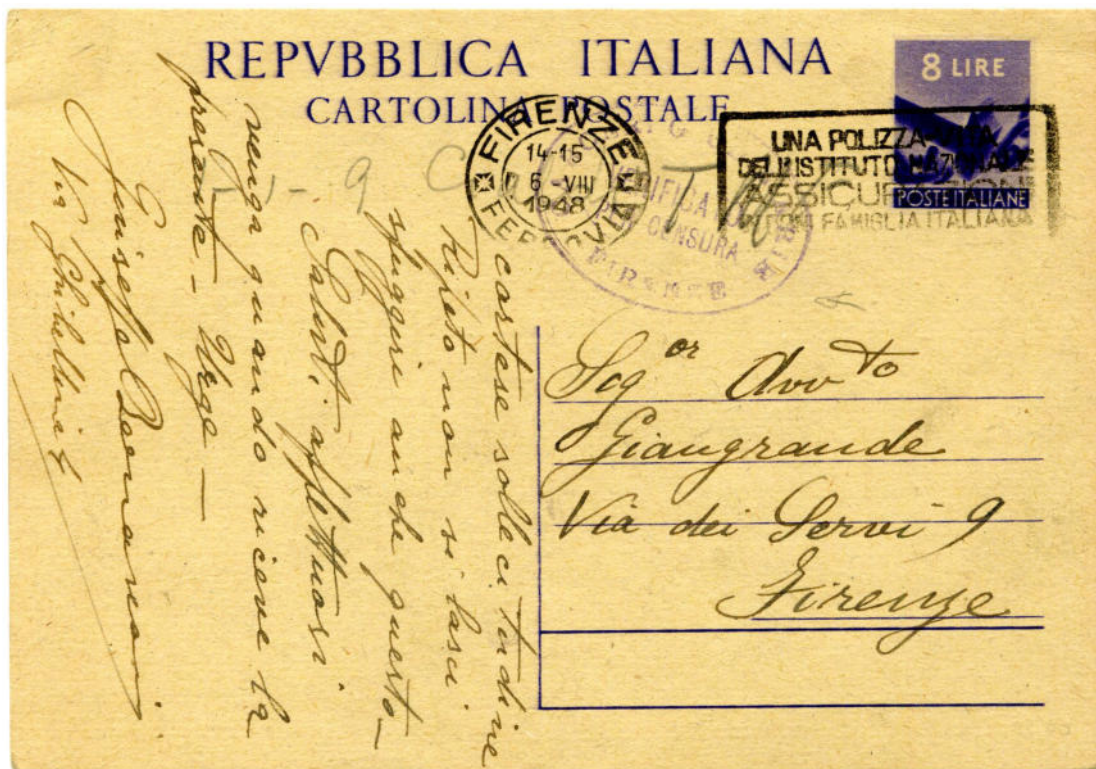 REPVBBLICA ITALIANA
CARTOLINA POSTALE
8 LIRE
POSTE ITALIANE
FIRENZE
14-15
6-VIII
1948
FERROVIA
UNA POLIZZA VITA
DELL'ISTITUTO NAZIONALE
ASSICURAZIONI
FAMIGLIA ITALIANA
CENSURA
FIRENZE
Sigor Avvto
Giangrande
Via dei Servi 9
Firenze
cortese sollecitudine
non si lasci
sfuggire anche questo—
Saluti affettuosi
venga quando riceve la
presente—
Via Ghibellina